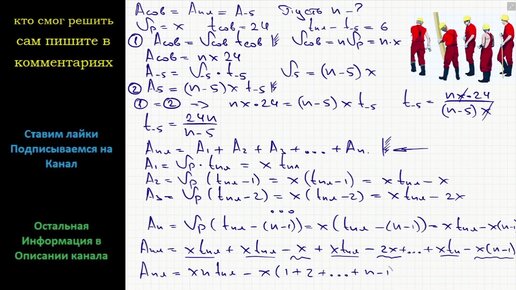 кто смог решить
сам пишите в
комментариях
Ставим лайки
Подписываемся на
Канал
Остальная
Информация в
Описании канала
Aсов = Aпл = A-5 Пусть n - ?
Vр = x tсов = 24 tпл - t-5 = 6
① Aсов = Vсов tсов Vсов = nVр = n·x
Aсов = nx 24
A-5 = V-5 · t-5 V-5 = (n-5) x
② A5 = (n-5) x t-5
① = ② => nx·24 = (n-5) x t-5 t-5 = nx·24 / (n-5) x
t-5 = 24n / n-5
Aпл = A1 + A2 + A3 + ... + An.
A1 = Vр · tпл = x tпл
A2 = Vр (tпл - 1) = x (tпл - 1) = x tпл - x
A3 = Vр (tпл - 2) = x (tпл - 2) = x tпл - 2x
...
An = Vр (tпл - (n-1)) = x (tпл - (n-1)) = x tпл - x(n-1
Aпл = x tпл + x tпл - x + x tпл - 2x + ... + x tп - x(n-1)
Aпл = xn tпл - x (1 + 2 + ... + n-1